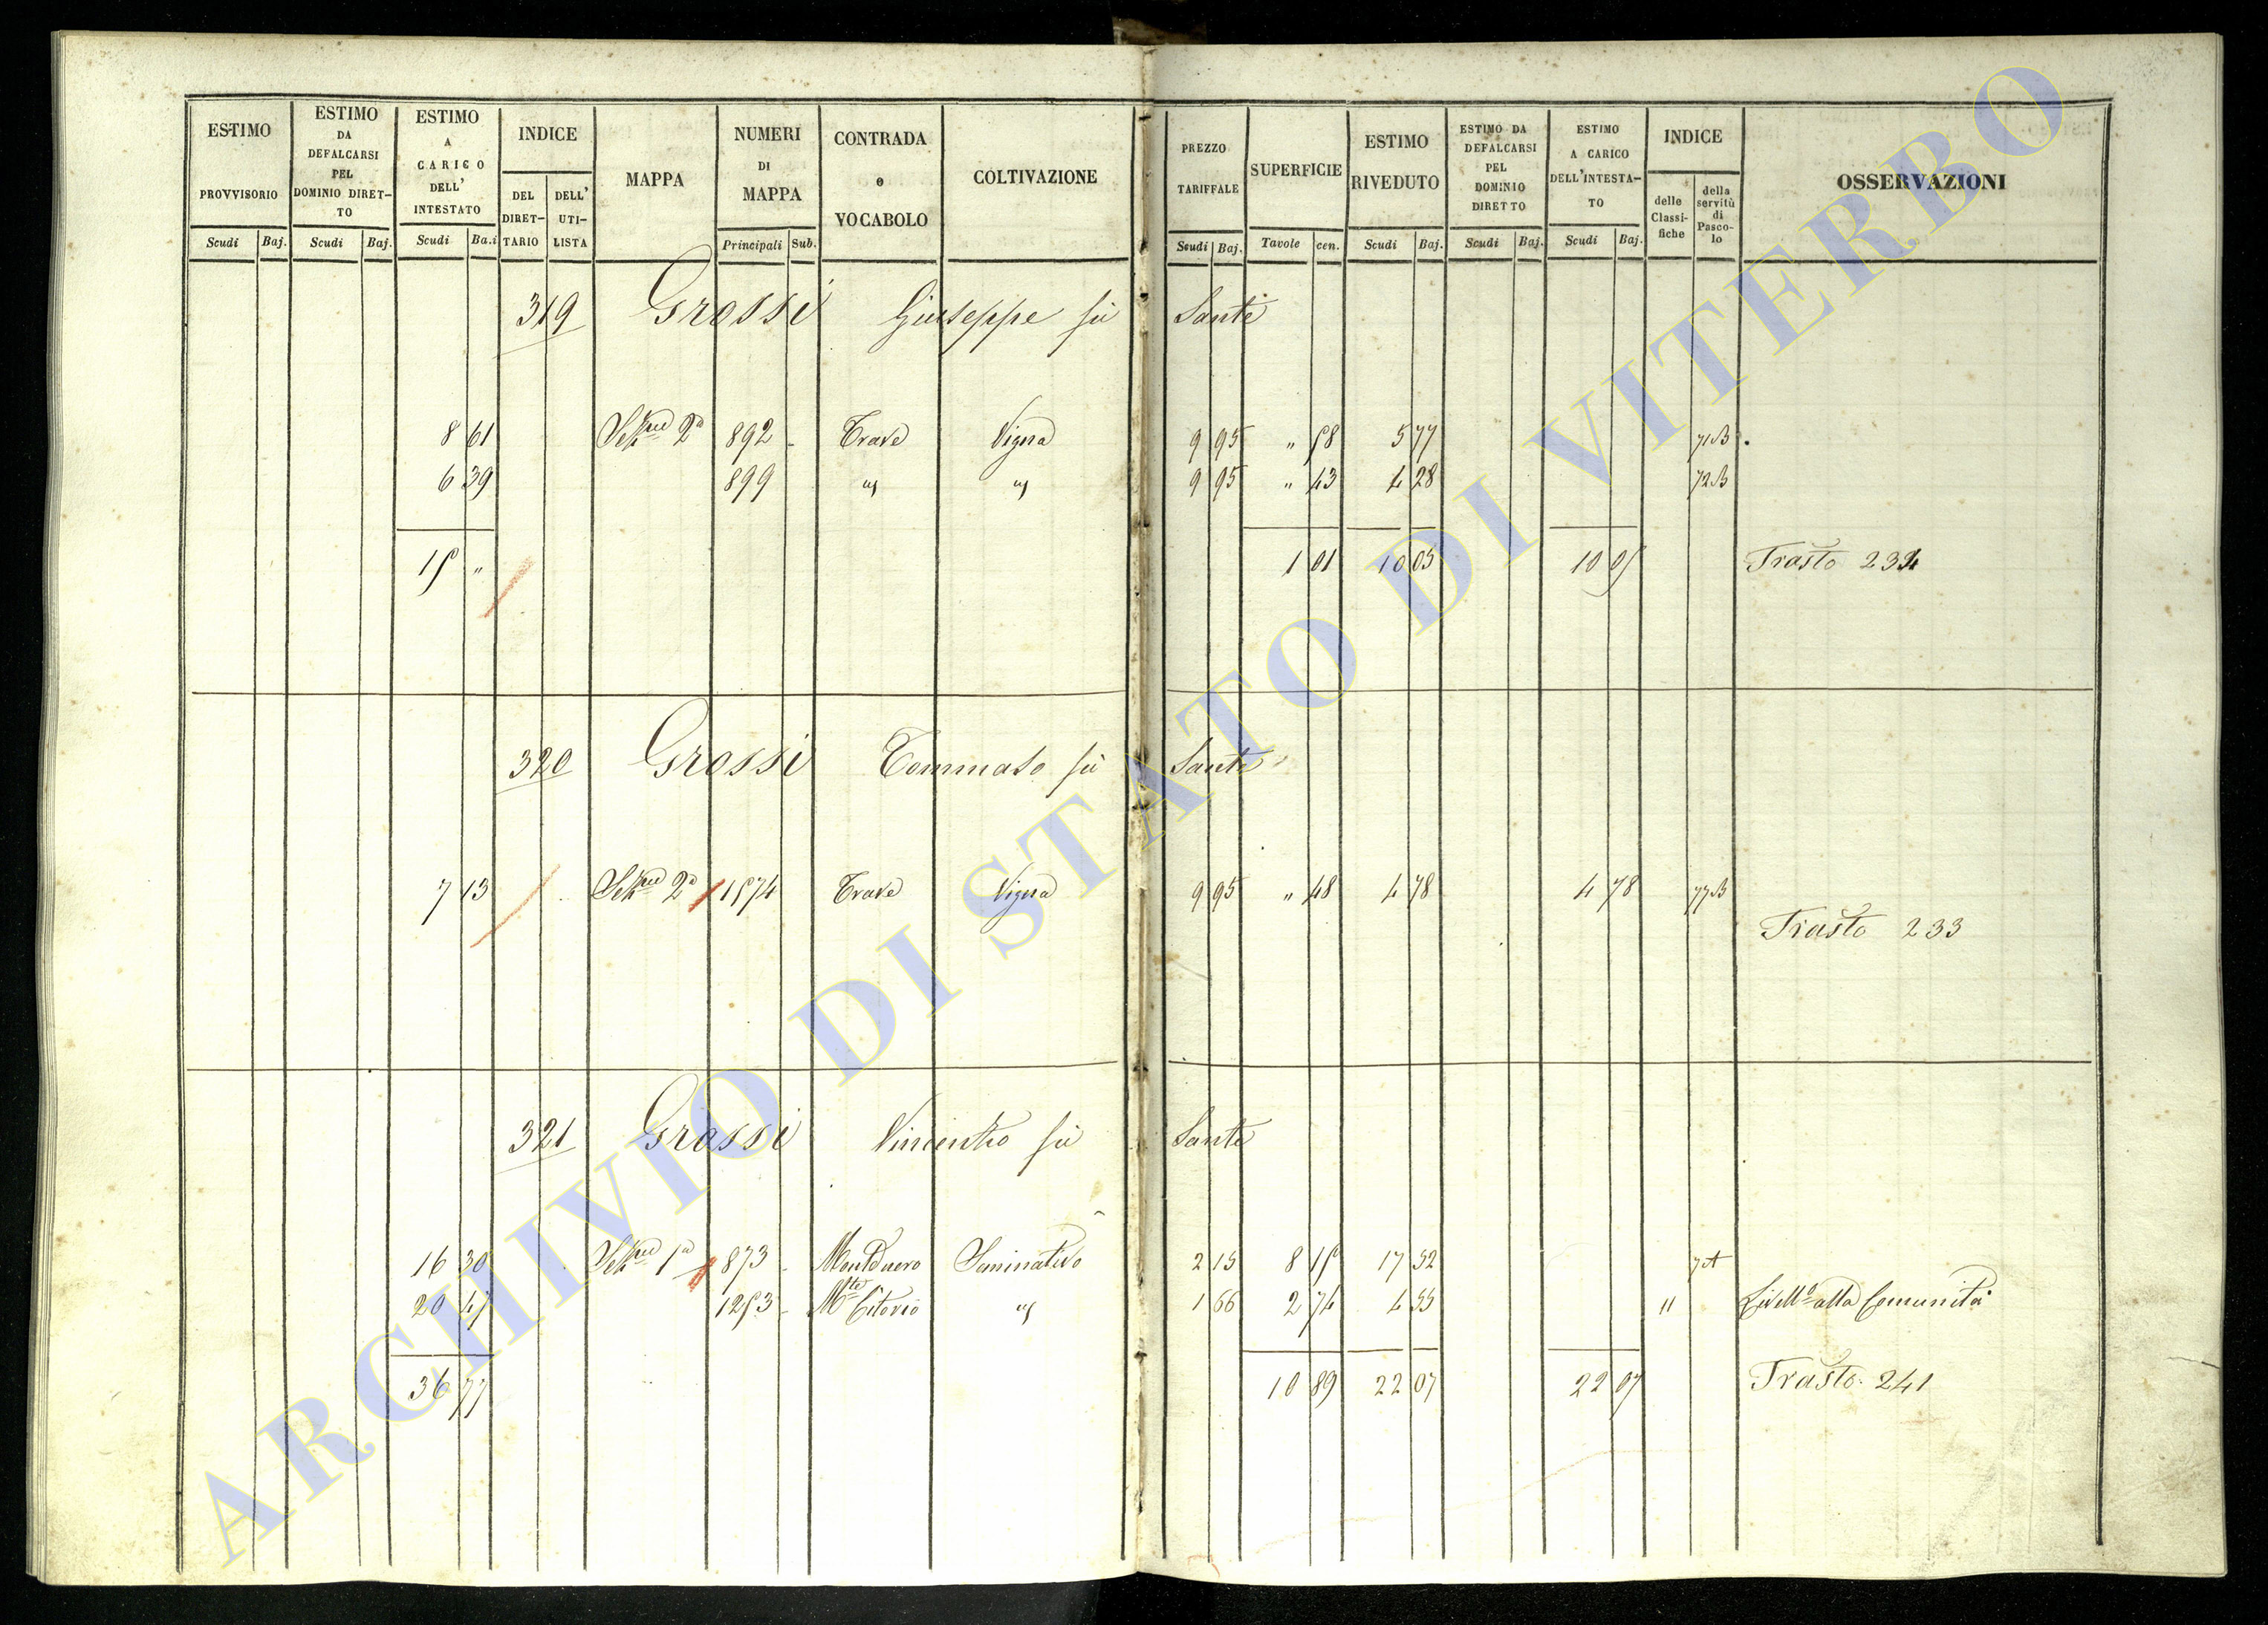 ESTIMO PROVVISORIO Scudi Baj.
ESTIMO DA DEFALCARSI PEL DOMINIO DIRET- TO Scudi Baj.
ESTIMO A CARICO DELL' INTESTATO Scudi Ba.i
INDICE DEL DIRET- TARIO DELL' UTI- LISTA
MAPPA
NUMERI DI MAPPA Principali Sub.
CONTRADA o VOCABOLO
COLTIVAZIONE
PREZZO TARIFFALE Scudi Baj.
SUPERFICIE Tavole cen.
ESTIMO RIVEDUTO Scudi Baj.
ESTIMO DA DEFALCARSI PEL DOMINIO DIRETTO Scudi Baj.
ESTIMO A CARICO DELL'INTESTA- TO Scudi Baj.
INDICE delle Classi- fiche della servitù di Pasco- lo
OSSERVAZIONI
319 Grossi Giuseppe fù Sante
8 61 2a 892 - Trave Vigna 9 95 " 58 5 77 71B
6 39 899 " " 9 95 " 43 4 28 72B
15 " 1 01 10 05 10 05 Trasto
320 Grossi Tommaso fù Sante
7 13 2a 1574 Trave Vigna 9 95 " 48 4 78 4 78 77B
Trasto 233
321 Grossi Vincenzo fù Sante
16 30 1a 873 - Seminativo 2 15 8 15 17 52 7A
20 47 1253 - Mte Citorio " 1 66 2 74 4 55 11 Livello alla Comunità
36 77 10 89 22 07 22 07 Trasto 241
ARCHIVIO DI STATO DI VITERBO